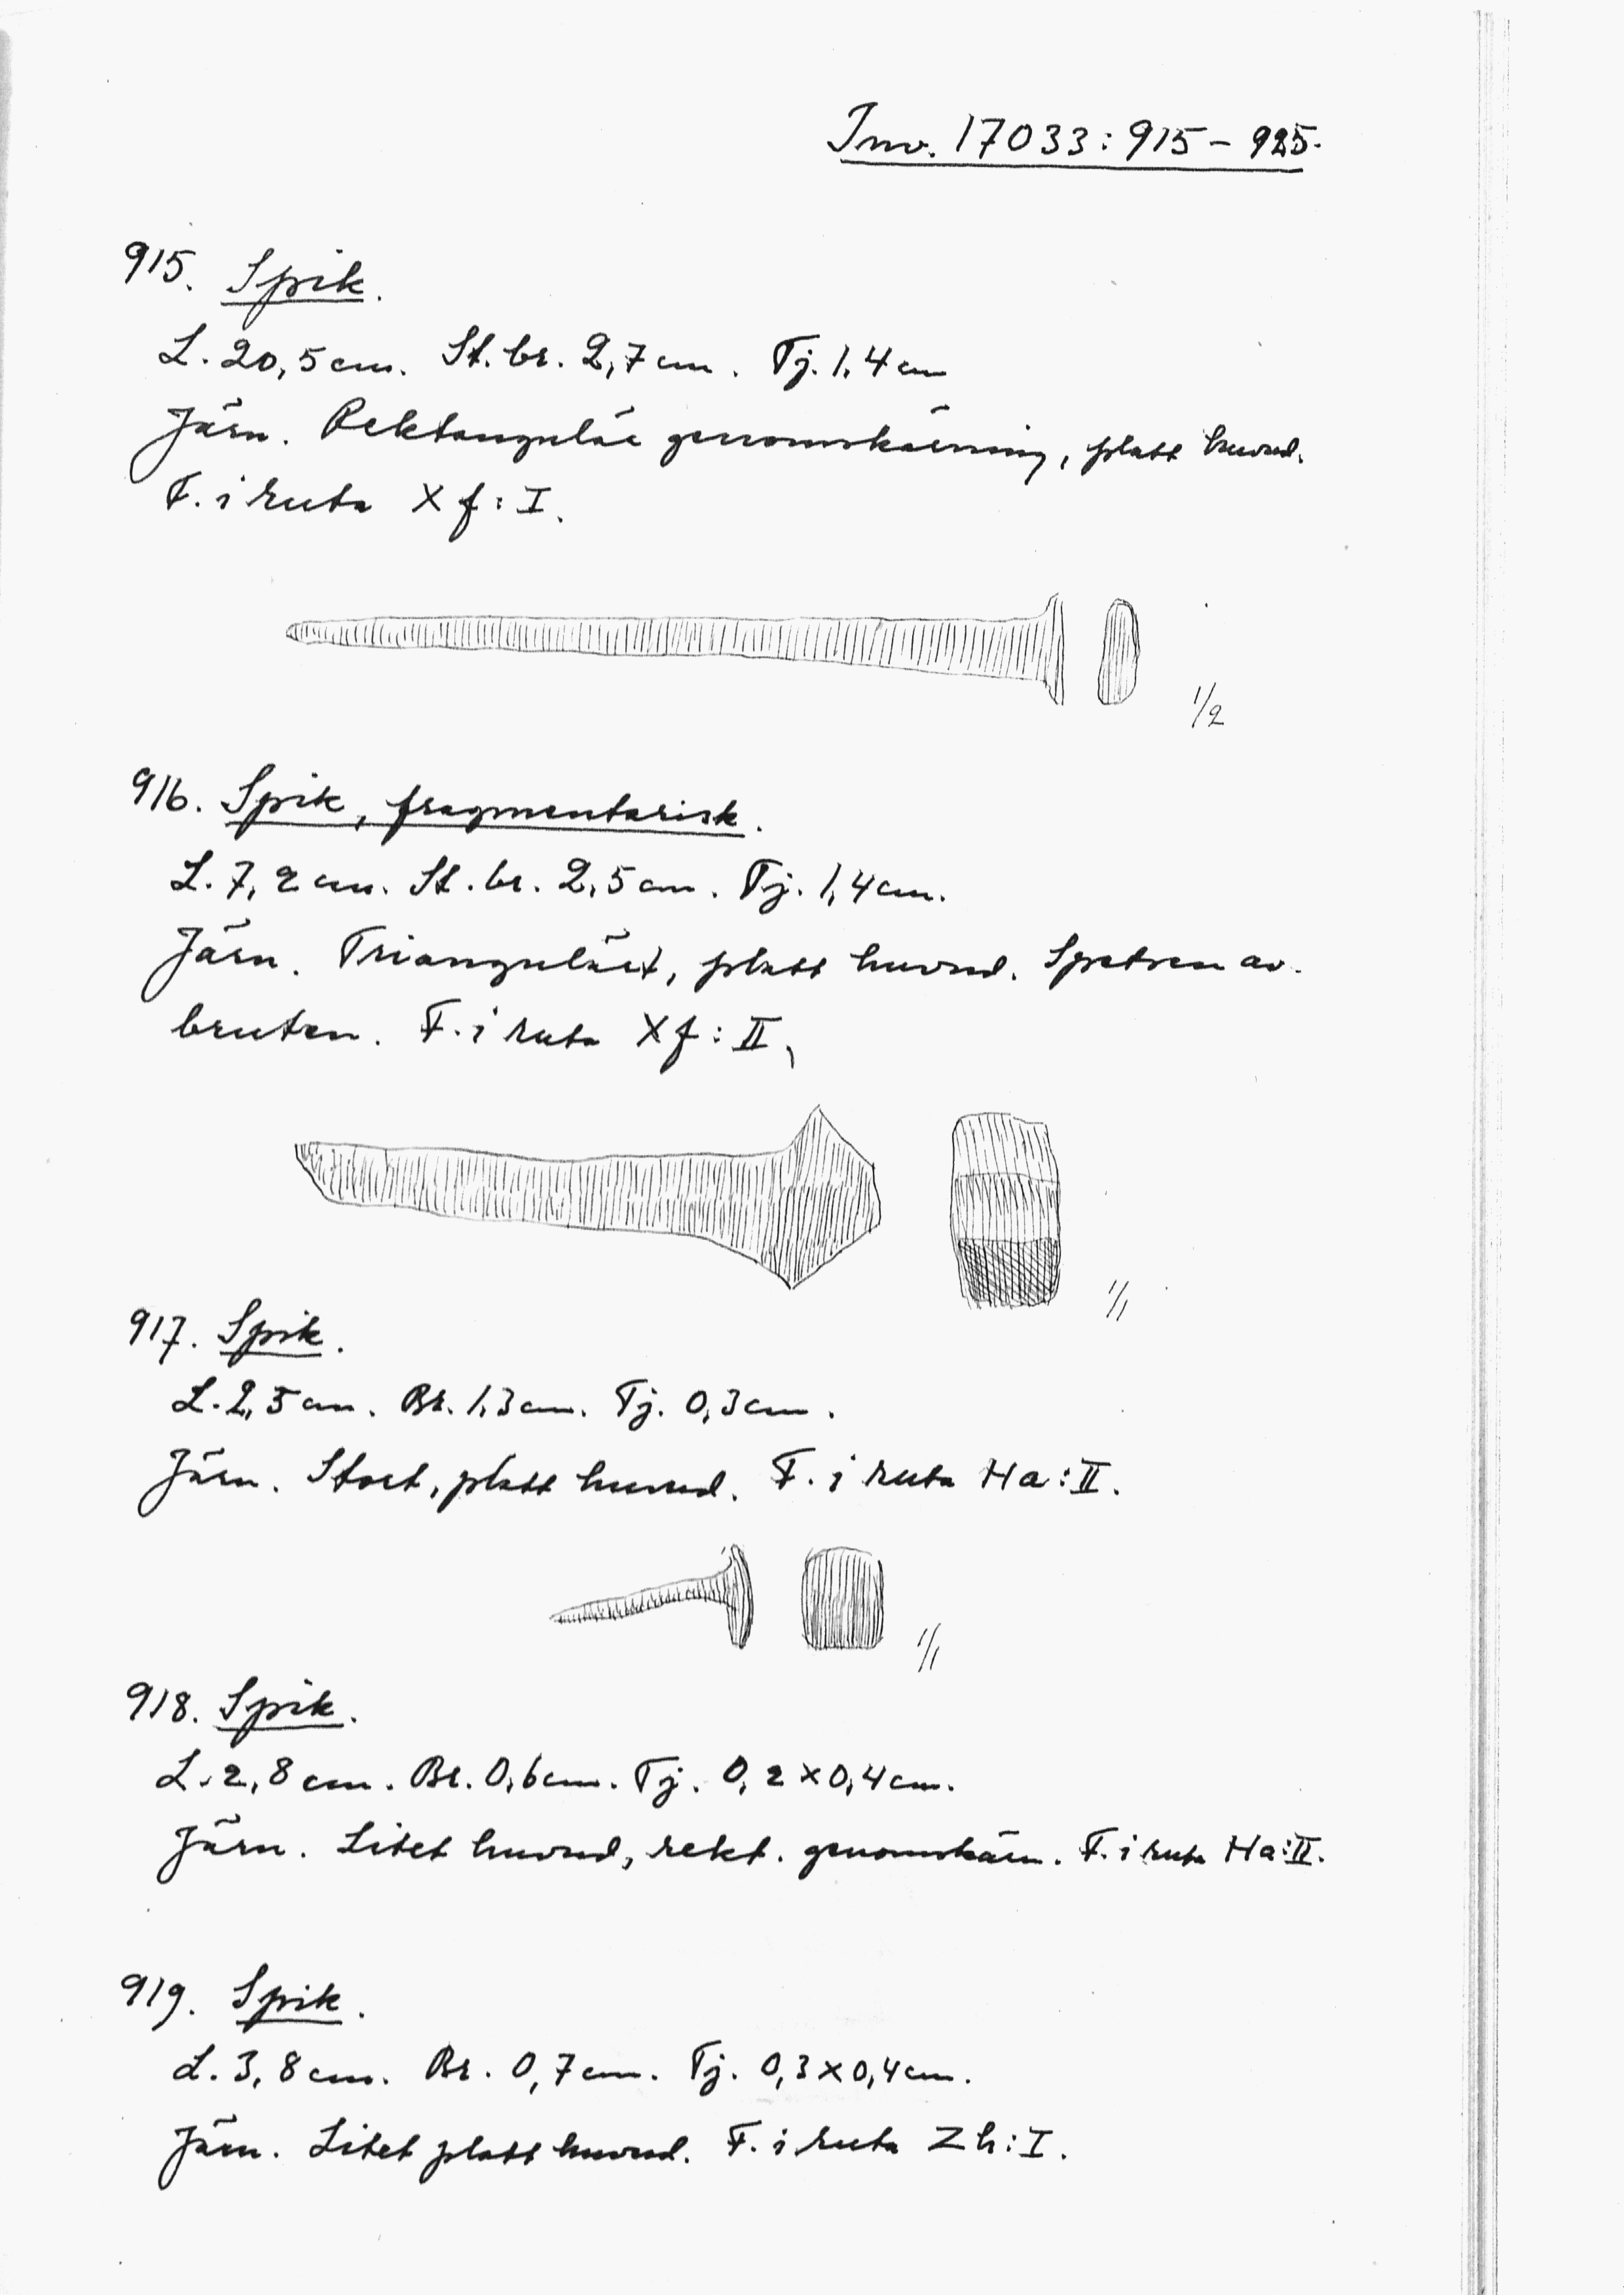 Inv. 17033:915–925.
915. Spik.
L. 20,5 cm. St. br. 2,7 cm. Tj. 1,4 cm
Järn. Rektangulär genomskärning, platt huvud.
F. i ruta Xf:I.
1/2
916. Spik, fragmentarisk.
L. 7,2 cm. St. br. 2,5 cm. Tj. 1,4 cm.
Järn. Triangulärt, platt huvud. Spetsen av-
bruten. F. i ruta Xf:II.
1/1
917. Spik.
L. 2,5 cm. Br. 1,3 cm. Tj. 0,3 cm.
Järn. Stort, platt huvud. F. i ruta Ha:II.
1/1
918. Spik.
L. 2,8 cm. Br. 0,6 cm. Tj. 0,2 x 0,4 cm.
Järn. Litet huvud, rekt. genomskärn. F. i ruta Ha:II.
919. Spik.
L. 3,8 cm. Br. 0,7 cm. Tj. 0,3 x 0,4 cm.
Järn. Litet platt huvud. F. i ruta Zh:I.